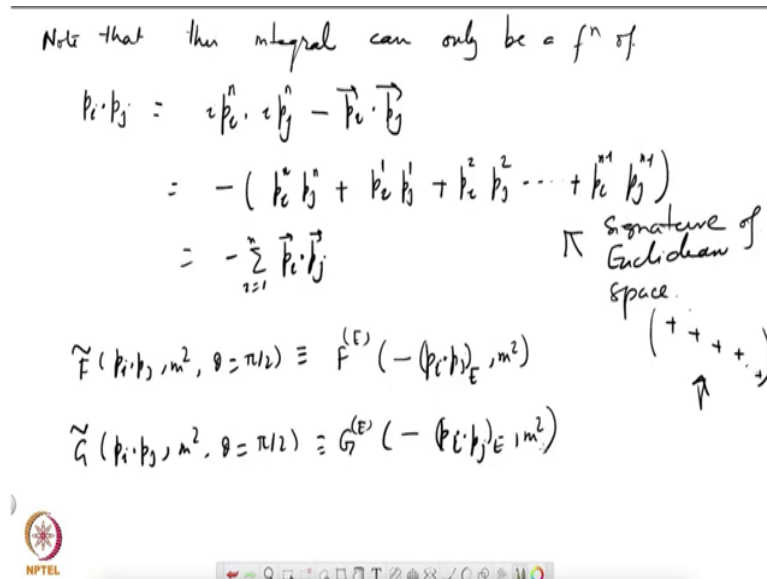 Note that this integral can only be a fⁿ of
pᵢ·pⱼ = i pᵢⁿ · i pⱼⁿ - p⃗ᵢ · p⃗ⱼ
= - ( pᵢⁿ pⱼⁿ + pᵢ¹ pⱼ¹ + pᵢ² pⱼ² ... + pᵢⁿ⁻¹ pⱼⁿ⁻¹ )
↖ signature of
Euclidean
space.
= - Σⁿᵢ₌₁ p⃗ᵢ·p⃗ⱼ
(+ + + + . +)
↑
F̃ (pᵢ·pⱼ, m², θ = π/2) ≡ F⁽ᴱ⁾ (-(pᵢ·pⱼ)_E, m²)
G̃ (pᵢ·pⱼ, m², θ = π/2) ≡ G⁽ᴱ⁾ (-(pᵢ·pⱼ)_E, m²)
NPTEL